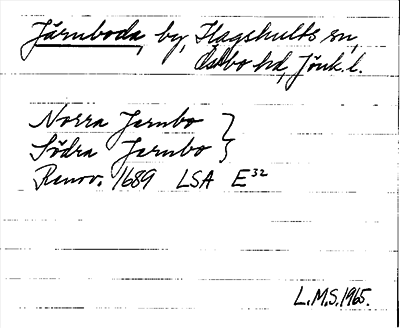 Järnboda, by, Hagshults sn,
Östbo hd, Jönk. l.
Norra Jernbo }
Södra Jernbo }
Renov. 1689 LSA E³²
L.M.S. 1965.